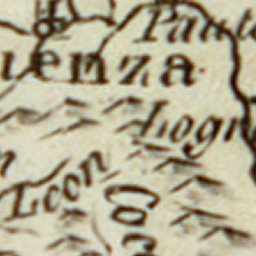 Paute
uenza
Logr
n
Leon
Cor